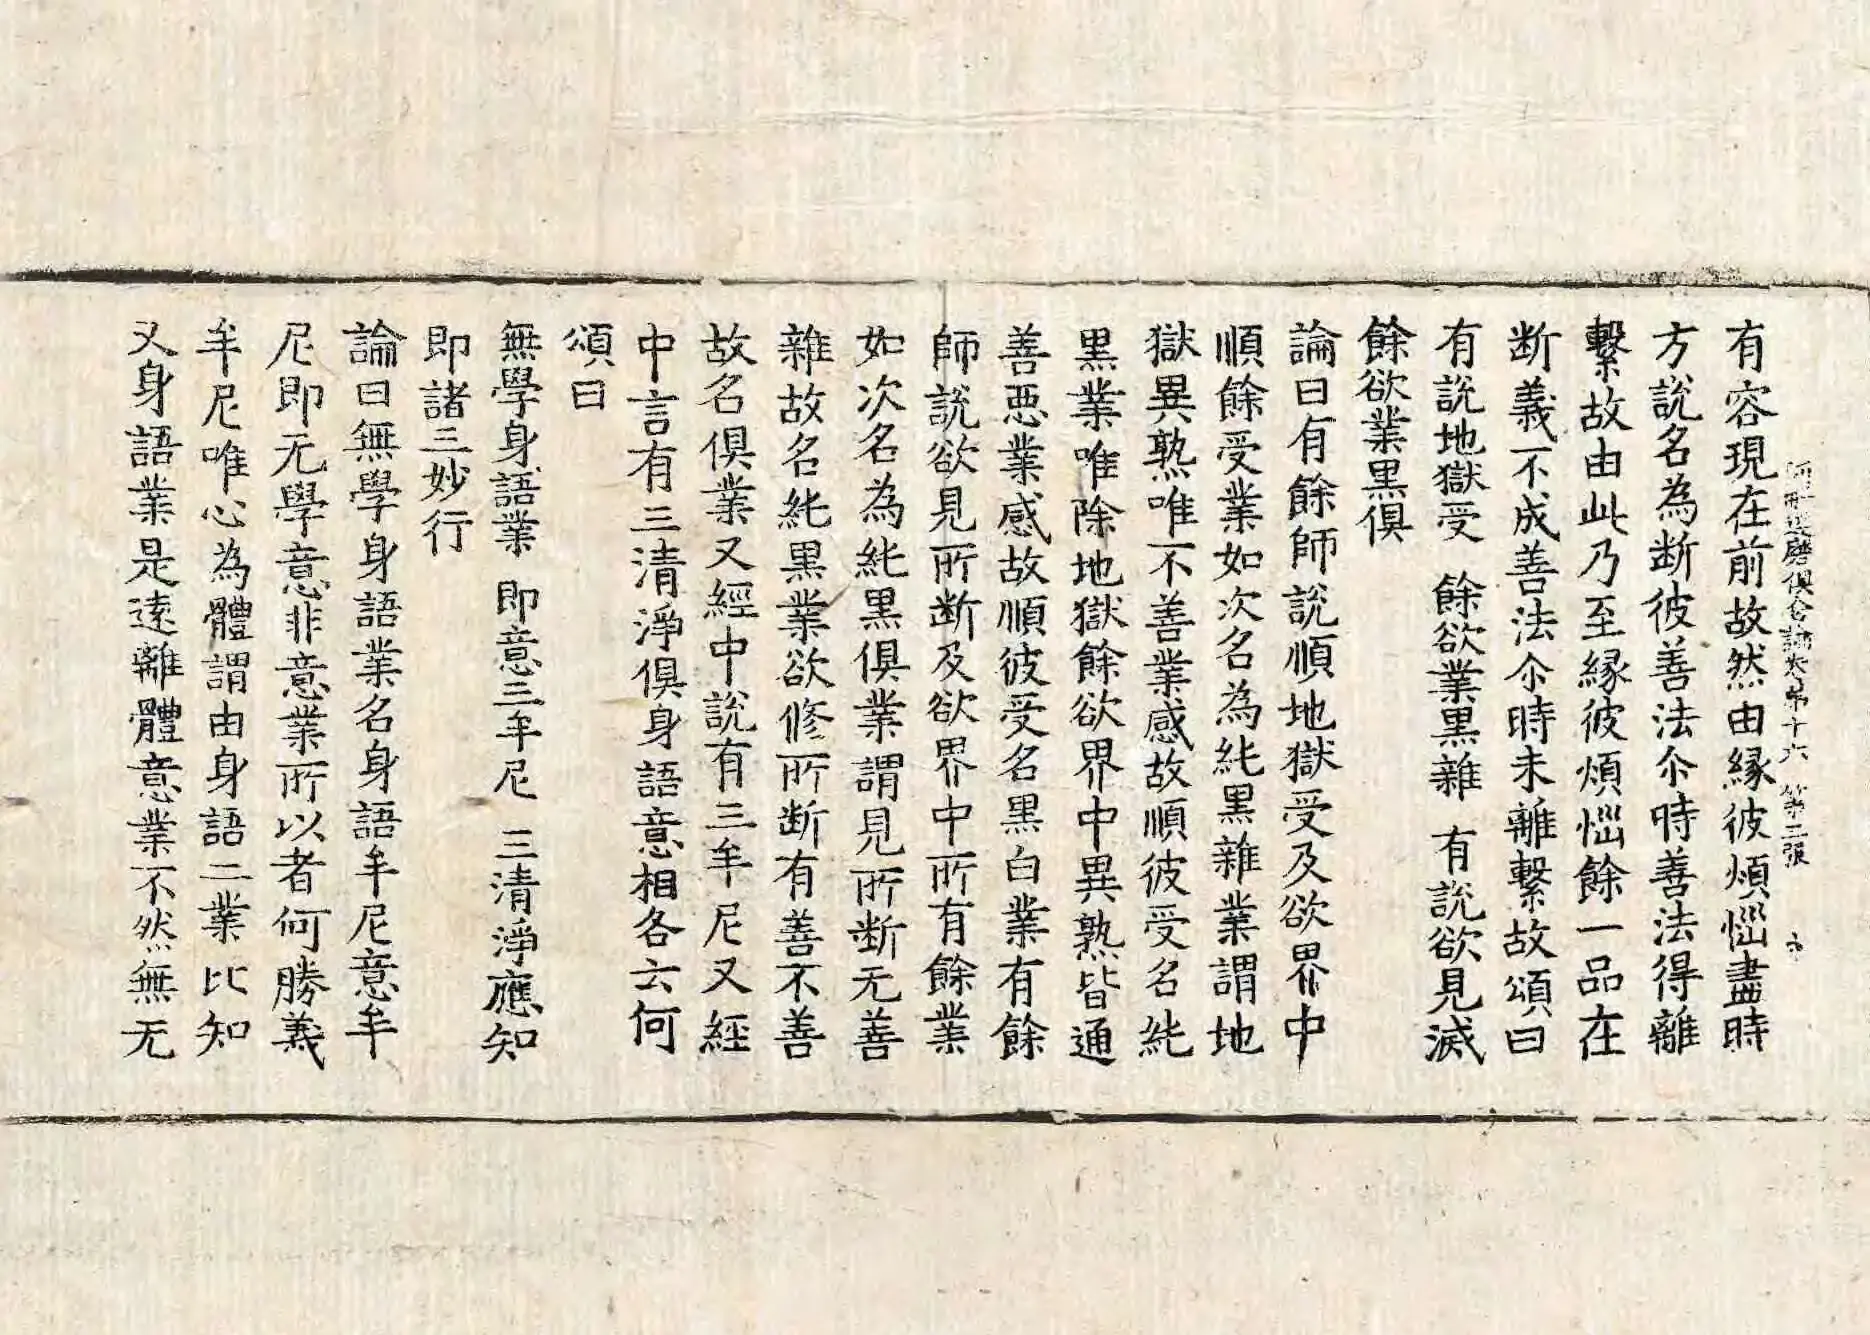 阿毗達磨俱舍論卷第十六 第三張
有容現在前故然由縁彼煩惱盡時
方說名為断彼善法尒時善法得離
繫故由此乃至縁彼煩惱餘一品在
断義不成善法尒時未離繫故頌曰
有說地獄受 餘欲業黒雜 有說欲見滅
餘欲業黒俱
論曰有餘師說順地獄受及欲界中
順餘受業如次名為純黒雜業謂地
獄異熟唯不善業感故順彼受名純
黒業唯除地獄餘欲界中異熟皆通
善惡業感故順彼受名黒白業有餘
師說欲見所断及欲界中所有餘業
如次名為純黒俱業謂見所断无善
雜故名純黒業欲修所断有善不善
故名俱業又經中說有三牟尼又經
中言有三清淨俱身語意相各云何
頌曰
無學身語業 即意三牟尼 三清淨應知
即諸三妙行
論曰無學身語業名身語牟尼意牟
尼即无學意非意業所以者何勝義
牟尼唯心為體謂由身語二業比知
又身語業是遠離體意業不然無无